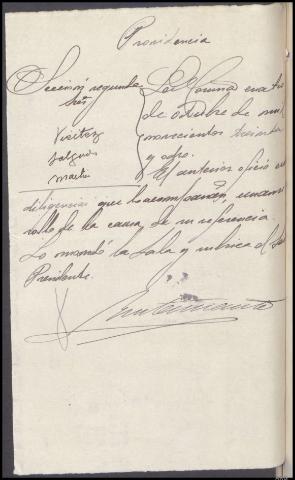 Providencia
Sección segunda
Sres
Vieitez
Salgado
Martin
La Coruña cuatro
de octubre de mil
novecientos treinta
y ocho.
El anterior oficio
diligencias que lo acompañan, unanse
rollo de la causa de su referencia.
Lo mandó la Sala y rubrica el
Presidente.